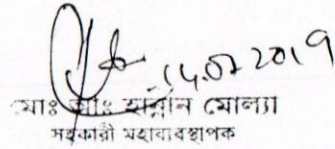 14.07.2019
মোঃ আঃ হান্নান মোল্যা
সহকারী মহাব্যবস্থাপক